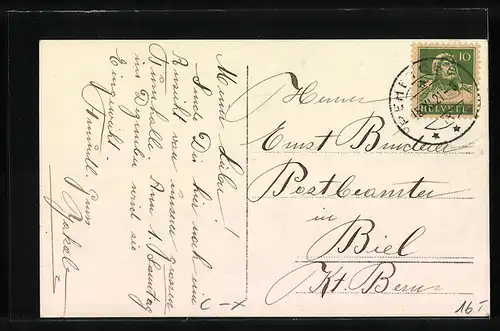 Mein Lieber!
Sende Dir hier noch eine
Ansicht von unserer grossen
Turnhalle. Am 1. Sonntag
im Dezember wird sie
Eingeweiht.
Freundl. Gruss
Jakob
C-X
10
HELVETIA
Herrn
Ernst
Postbeamter
in
Biel
Kt. Bern
16.-